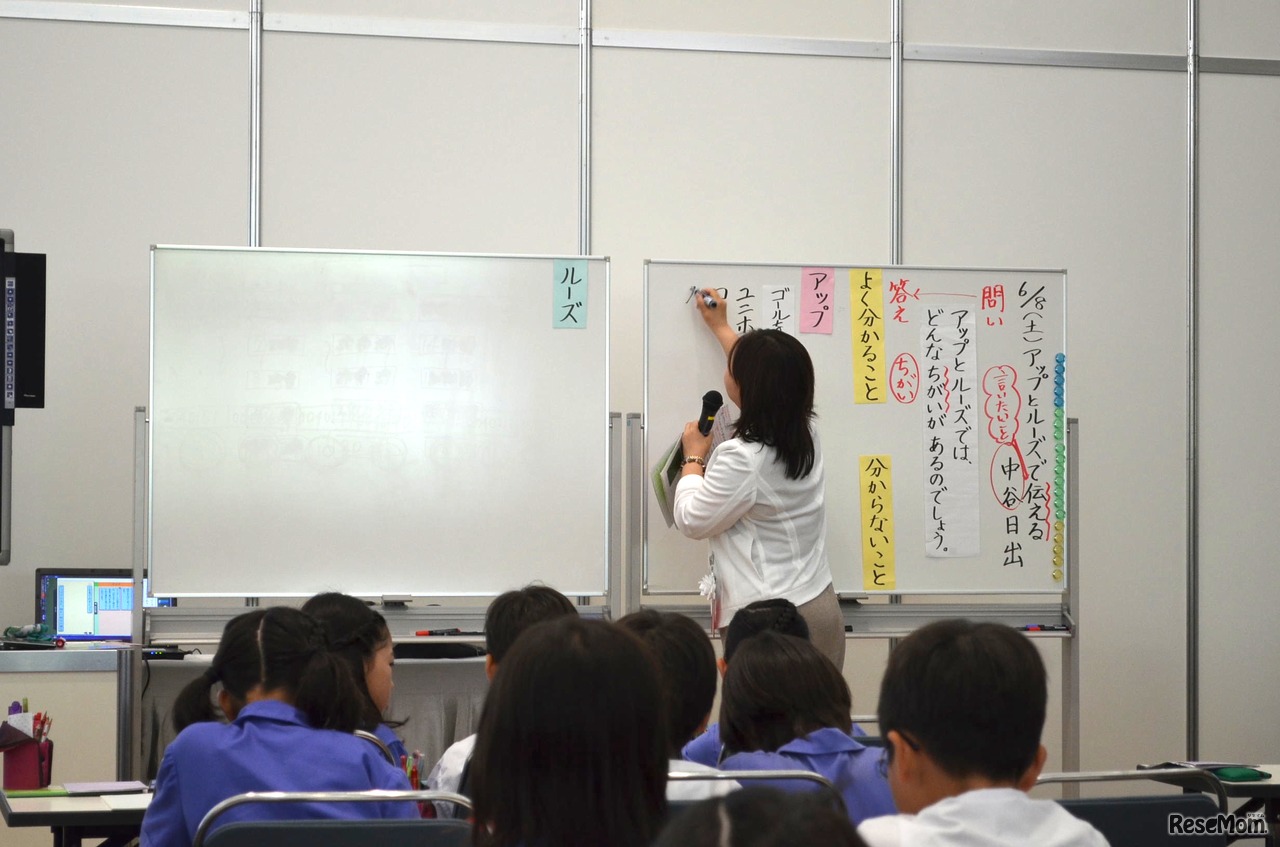 6/8(土)アップとルーズで伝える
中谷日出
言いたいこと
問い
アップとルーズでは、
どんなちがいがあるのでしょう。
答え
ちがい
よく分かること
分からないこと
アップ
ゴールを
ユニホ
ルーズ
ReseMom